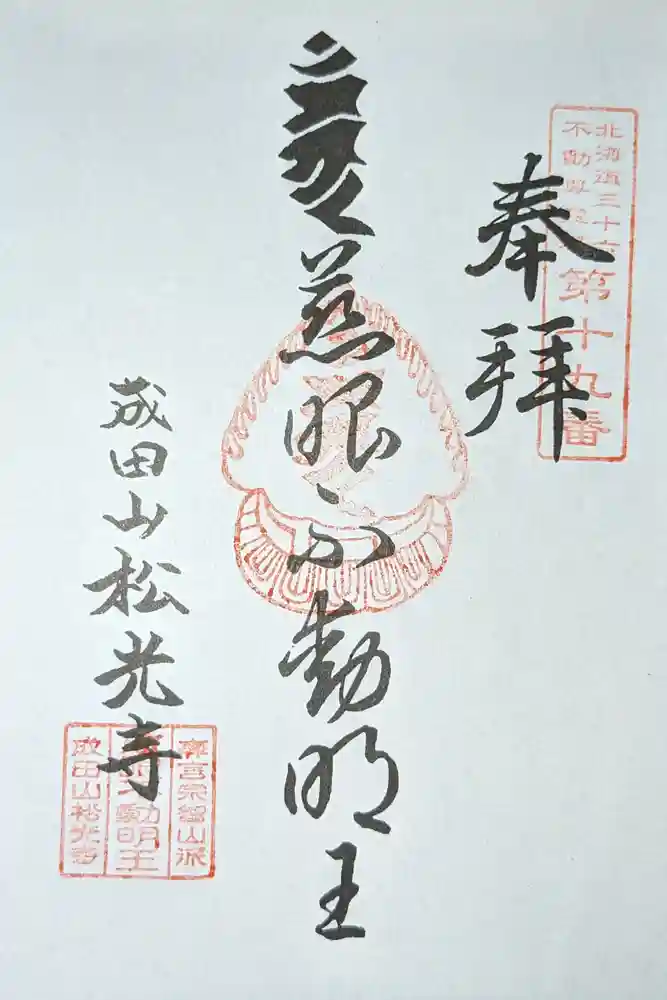 北海道三十六
不動尊霊場
第十九番
奉拝
慈眼不動明王
成田山松光寺
真言宗智山派
不動明王
成田山松光寺